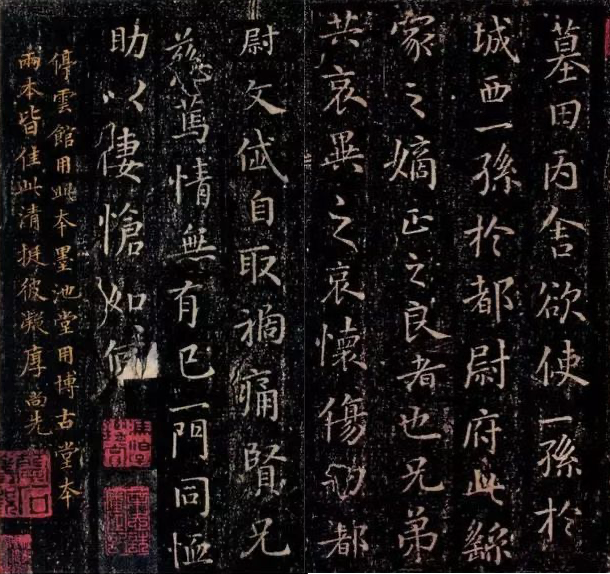 墓田丙舍欲使一孫於
城西一孫於都尉府此繇
家之嫡正之良者也兄弟
共哀異之哀懷傷切都
尉文岱自取禍痛賢兄
慈篤情無有已一門同恤
助以悽愴如何
停雲館用此本墨池堂用博古堂本
兩本皆佳此清挺彼凝厚 尚先